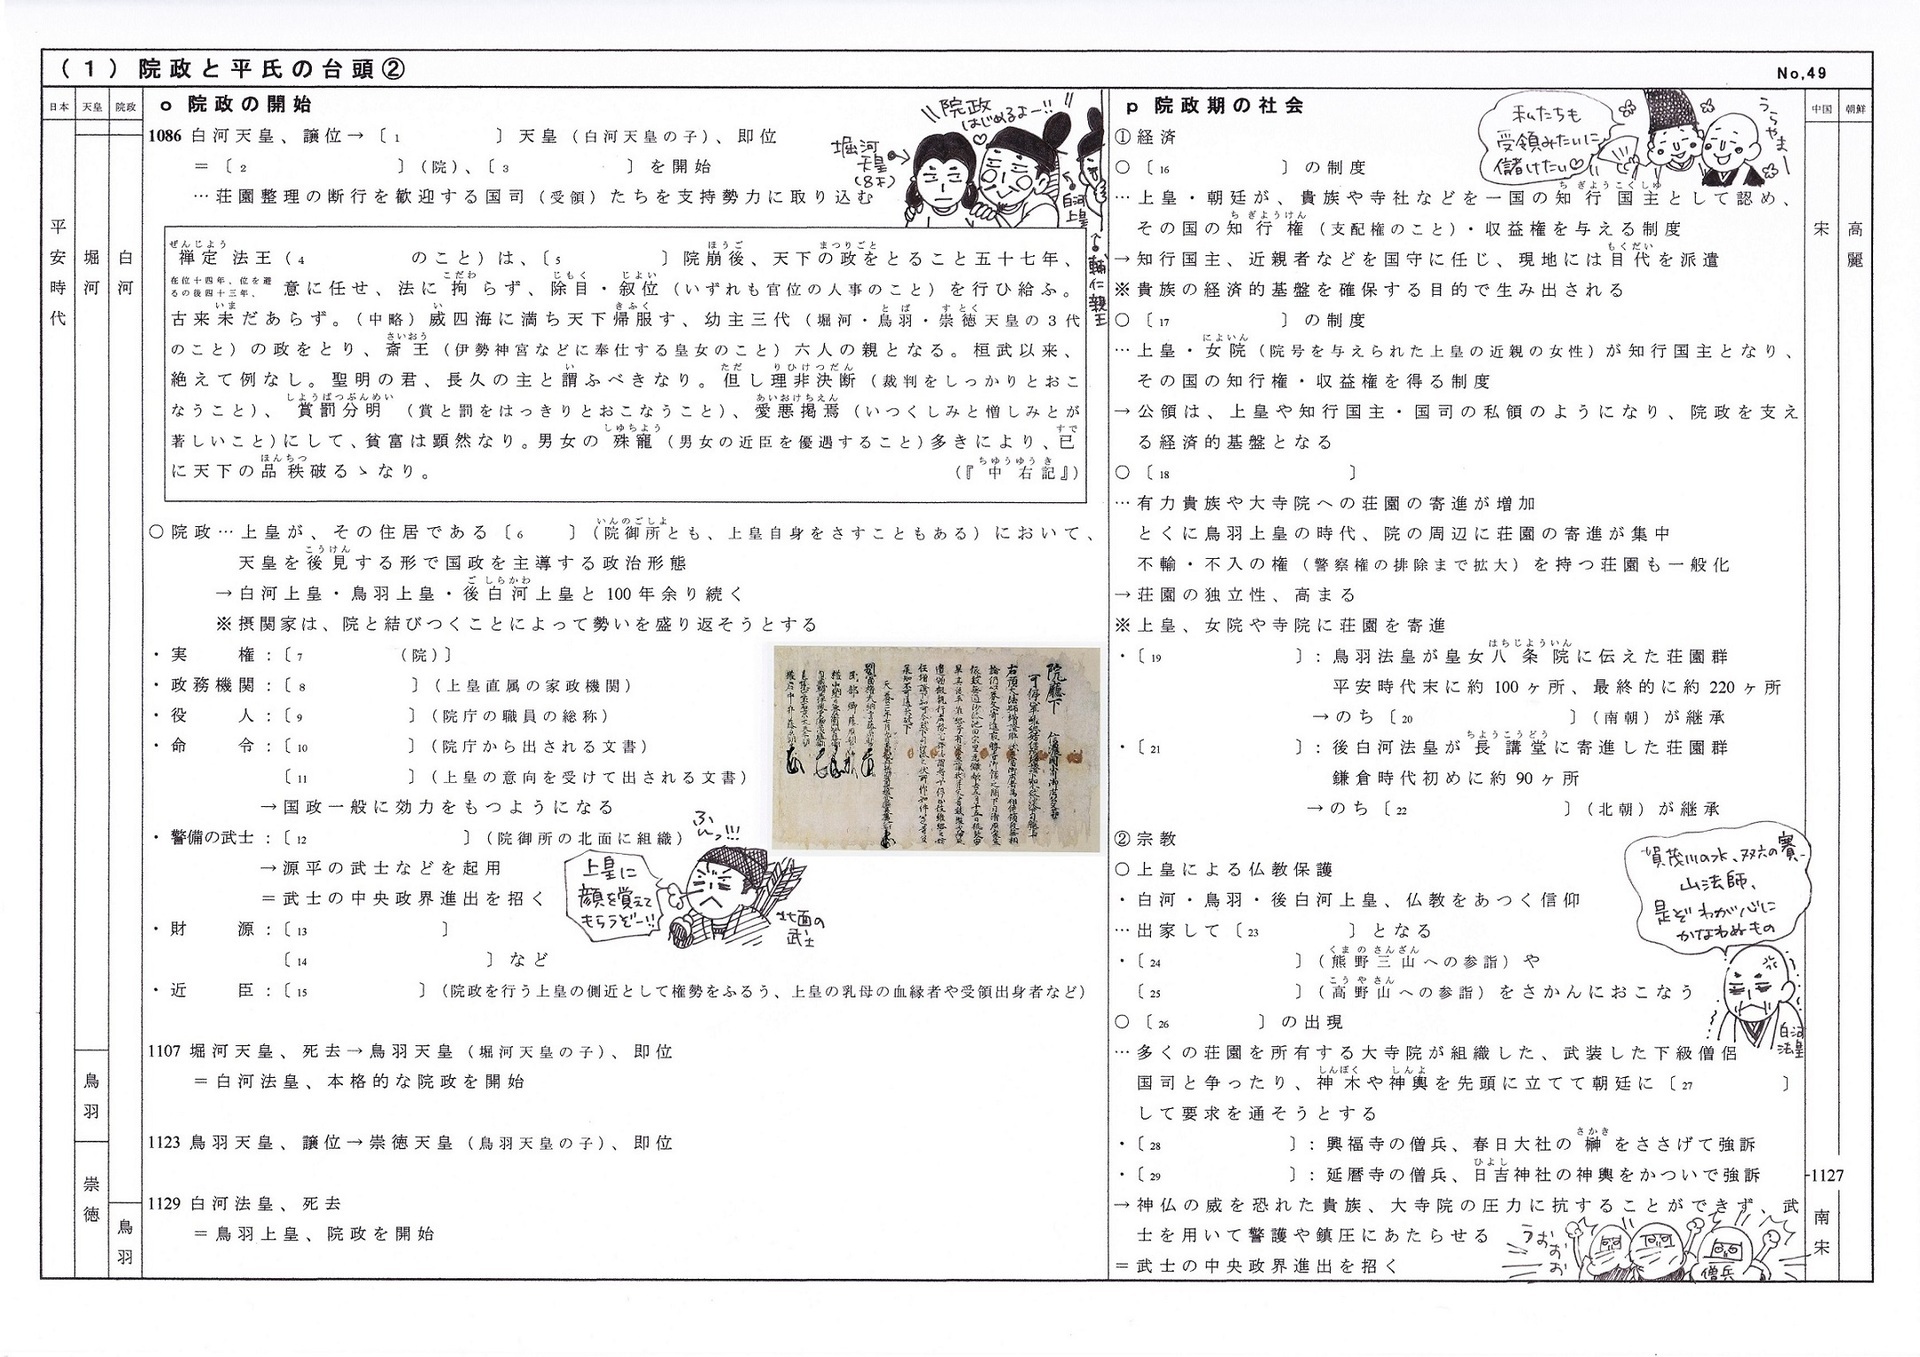 (１) 院政と平氏の台頭②
No,49
日本 天皇 院政
平安時代
堀河
白河
鳥羽
崇徳
鳥羽
o 院政の開始
1086 白河天皇、譲位→〔1 〕天皇（白河天皇の子）、即位
＝〔2 〕（院）、〔3 〕を開始
…荘園整理の断行を歓迎する国司（受領）たちを支持勢力に取り込む
\\院政はじめるよー!!//
堀河天皇(8才)
白河上皇
輔仁親王
ぜんじよう ほうご まつりごと
禅定法王（4 のこと）は、〔5 〕院崩後、天下の政をとること五十七年、
在位十四年、位を避るの後四十三年、
こだわ じもく じよい
意に任せ、法に拘らず、除目・叙位（いずれも官位の人事のこと）を行ひ給ふ。
いま い きふく とば すとく
古来未だあらず。（中略）威四海に満ち天下帰服す、幼主三代（堀河・鳥羽・崇徳天皇の３代
さいおう
のこと）の政をとり、斎王（伊勢神宮などに奉仕する皇女のこと）六人の親となる。桓武以来、
い ただ りひけつだん
絶えて例なし。聖明の君、長久の主と謂ふべきなり。但し理非決断（裁判をしっかりとおこ
しようばつぶんめい あいおけちえん
なうこと）、賞罰分明（賞と罰をはっきりとおこなうこと）、愛悪掲焉（いつくしみと憎しみとが
しゆちよう すで
著しいこと）にして、貧富は顕然なり。男女の殊寵（男女の近臣を優遇すること）多きにより、已
ほんちつ ちゆうゆうき
に天下の品秩破るゝなり。 （『中右記』）
いんのごしよ
○院政…上皇が、その住居である〔6 〕（院御所とも、上皇自身をさすこともある）において、
こうけん
天皇を後見する形で国政を主導する政治形態
ご しらかわ
→白河上皇・鳥羽上皇・後白河上皇と100年余り続く
※摂関家は、院と結びつくことによって勢いを盛り返そうとする
・実 権：〔7 （院）〕
・政務機関：〔8 〕（上皇直属の家政機関）
・役 人：〔9 〕（院庁の職員の総称）
・命 令：〔10 〕（院庁から出される文書）
〔11 〕（上皇の意向を受けて出される文書）
→国政一般に効力をもつようになる
・警備の武士：〔12 〕（院御所の北面に組織）
→源平の武士などを起用
＝武士の中央政界進出を招く
ふんっ!!!
上皇に顔を覚えてもらうぞー!!
北面の武士
・財 源：〔13 〕
〔14 〕など
・近 臣：〔15 〕（院政を行う上皇の側近として権勢をふるう、上皇の乳母の血縁者や受領出身者など）
1107 堀河天皇、死去→鳥羽天皇（堀河天皇の子）、即位
＝白河法皇、本格的な院政を開始
1123 鳥羽天皇、譲位→崇徳天皇（鳥羽天皇の子）、即位
1129 白河法皇、死去
＝鳥羽上皇、院政を開始
p 院政期の社会
私たちも受領みたいに儲けたい♡
うらやまー
①経済
○〔16 〕の制度
ちぎようこくしゆ
…上皇・朝廷が、貴族や寺社などを一国の知行国主として認め、
ちぎようけん
その国の知行権（支配権のこと）・収益権を与える制度
もくだい
→知行国主、近親者などを国守に任じ、現地には目代を派遣
※貴族の経済的基盤を確保する目的で生み出される
○〔17 〕の制度
によいん
…上皇・女院（院号を与えられた上皇の近親の女性）が知行国主となり、
その国の知行権・収益権を得る制度
→公領は、上皇や知行国主・国司の私領のようになり、院政を支え
る経済的基盤となる
○〔18 〕
…有力貴族や大寺院への荘園の寄進が増加
とくに鳥羽上皇の時代、院の周辺に荘園の寄進が集中
不輸・不入の権（警察権の排除まで拡大）を持つ荘園も一般化
→荘園の独立性、高まる
※上皇、女院や寺院に荘園を寄進
はちじよういん
・〔19 〕：鳥羽法皇が皇女八条院に伝えた荘園群
平安時代末に約100ヶ所、最終的に約220ヶ所
→のち〔20 〕（南朝）が継承
ちようこうどう
・〔21 〕：後白河法皇が長講堂に寄進した荘園群
鎌倉時代初めに約90ヶ所
→のち〔22 〕（北朝）が継承
②宗教
○上皇による仏教保護
・白河・鳥羽・後白河上皇、仏教をあつく信仰
…出家して〔23 〕となる
くまのさんざん
・〔24 〕（熊野三山への参詣）や
こうやさん
〔25 〕（高野山への参詣）をさかんにおこなう
賀茂川の水、双六の賽、山法師、是ぞわが心にかなわぬもの
白河法皇
○〔26 〕の出現
…多くの荘園を所有する大寺院が組織した、武装した下級僧侶
しんぼく しんよ
国司と争ったり、神木や神輿を先頭に立てて朝廷に〔27 〕
して要求を通そうとする
さかき
・〔28 〕：興福寺の僧兵、春日大社の榊をささげて強訴
ひよし
・〔29 〕：延暦寺の僧兵、日吉神社の神輿をかついで強訴
→神仏の威を恐れた貴族、大寺院の圧力に抗することができず、武
士を用いて警護や鎮圧にあたらせる
＝武士の中央政界進出を招く
うおおお
僧兵
中国 朝鮮
宋
高麗
-1127
南宋